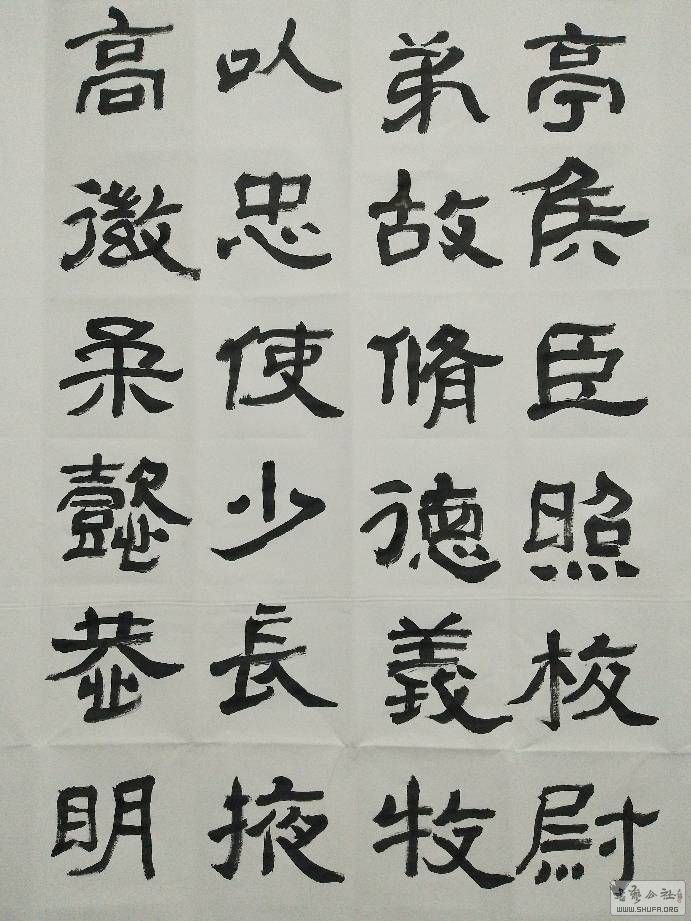 亭侯臣照校尉
弟故脩德義牧
以忠使少長掖
高徽柔懿恭明
WWW.SHUFA.ORG